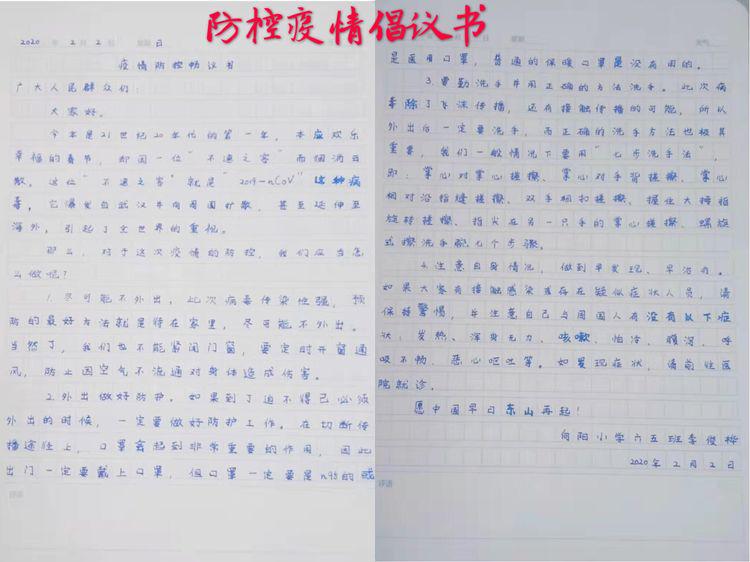 防控疫情倡议书
2020年2月2日 星期日
疫情防控畅议书
广大人民群众们:
大家好。
今年是21世纪20年代的第一年，本应欢乐
幸福的春节，却因一位“不速之客”而烟消云
散。这位“不速之客”就是“2019-nCoV”这种病
毒，它爆发自武汉并向周围扩散，甚至延伸至
海外，引起了全世界的重视。
那么，对于这次疫情的防控，我们应当怎
么做呢?
1.尽可能不外出，此次病毒传染性强，预
防的最好方法就是待在家里，尽可能不外出。
当然了，我们也不能紧闭门窗，要定时开窗通
风，防止因空气不流通对身体造成伤害。
2.外出做好防护。如果到了迫不得已必须
外出的时候，一定要做好防护工作。在切断传
播途径上，口罩会起到非常重要的作用，因此
出门一定要戴上口罩，但口罩一定要是n95的或
评语
天气
是医用口罩，普通的保暖口罩是没有用的。
3.要勤洗手并用正确的方法洗手。此次病
毒除了飞沫传播，还有接触传播的可能，所以
外出后一定要洗手，而正确的洗手方法也极其
重要，我们一般情况下要用“七步洗手法”，
即：掌心对掌心搓擦、掌心对手背搓擦、掌心
相对沿指缝搓擦、双手相扣搓擦、握住大拇指
旋转搓擦、指尖在另一只手的掌心搓擦、螺旋
式擦洗手腕七个步骤。
4.注意自身情况，做到早发现、早治疗。
如果大家有接触感染者存在疑似症状人员，请
保持警惕，并注意自己与周围人有没有以下症
状：发热、浑身无力、咳嗽、怕冷、腹泻、呼
吸不畅、恶心呕吐等。如发现症状，请前往医
院就诊。
愿中国早日东山再起!
向阳小学六五班李俊桦
2020年2月2日
评语